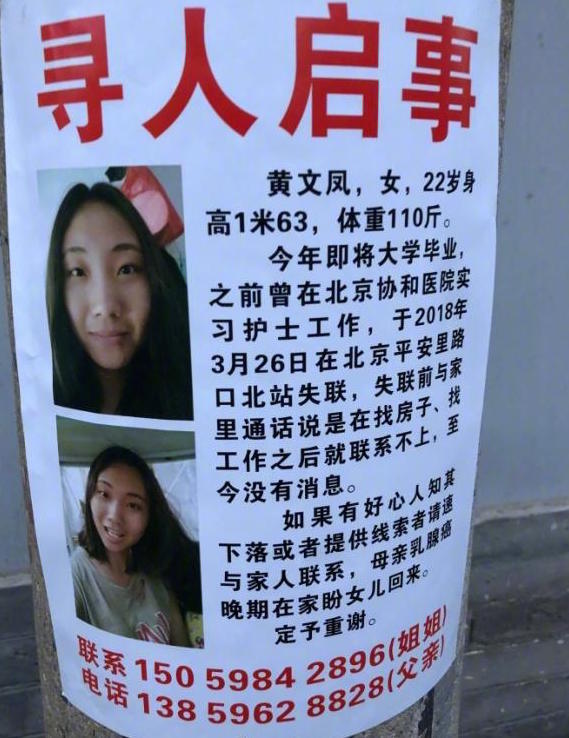 寻人启事
黄文凤，女，22岁身
高1米63，体重110斤。
今年即将大学毕业，
之前曾在北京协和医院实
习护士工作，于2018年
3月26日在北京平安里路
口北站失联，失联前与家
里通话说是在找房子、找
工作之后就联系不上，至
今没有消息。
如果有好心人知其
下落或者提供线索者请速
与家人联系，母亲乳腺癌
晚期在家盼女儿回来。
定予重谢。
联系 150 5984 2896(姐姐)
电话 138 5962 8828(父亲)